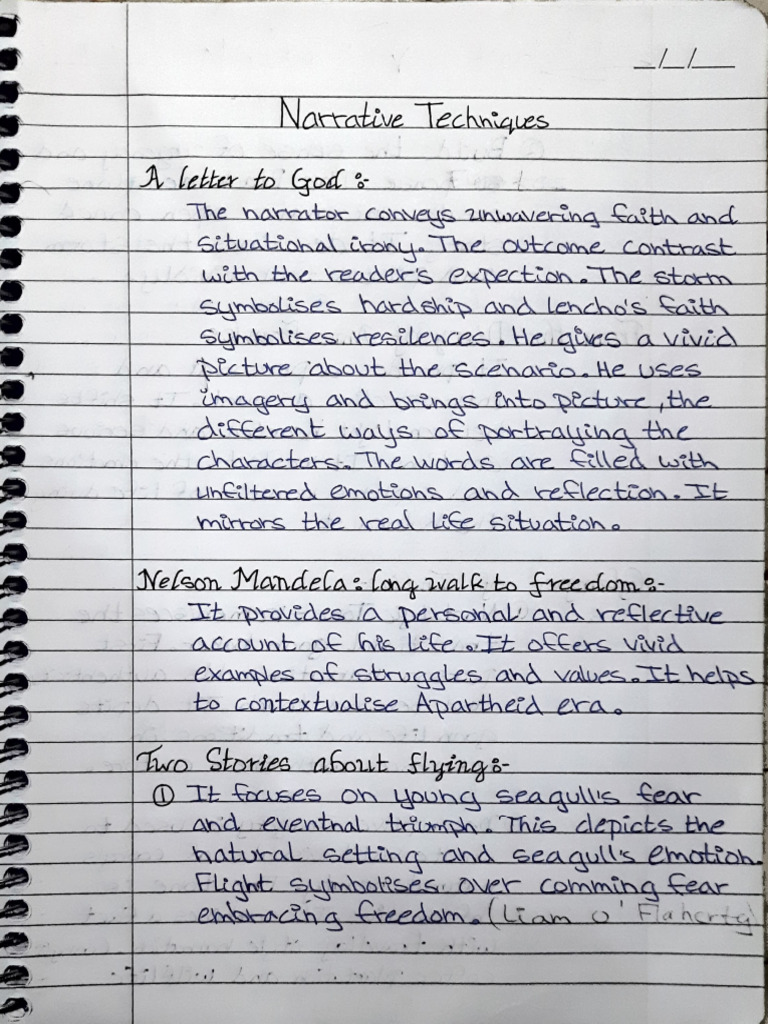 _/_/__
Narrative Techniques
A letter to God :-
The narrator conveys unwavering faith and
situational irony. The outcome contrast
with the reader's expection. The storm
symbolises hardship and lencho's faith
symbolises resilences. He gives a vivid
picture about the scenario. He uses
imagery and brings into picture, the
different ways of portraying the
characters. The words are filled with
unfiltered emotions and reflection. It
mirrors the real life situation.
Nelson Mandela : long walk to freedom :-
It provides a personal and reflective
account of his life. It offers vivid
examples of struggles and values. It helps
to contextualise Apartheid era.
Two Stories about flying :-
① It focuses on young seagull's fear
and eventnal triumph. This depicts the
natural setting and seagull's emotion.
Flight symbolises over comming fear
embracing freedom. (Liam O' Flaherty)